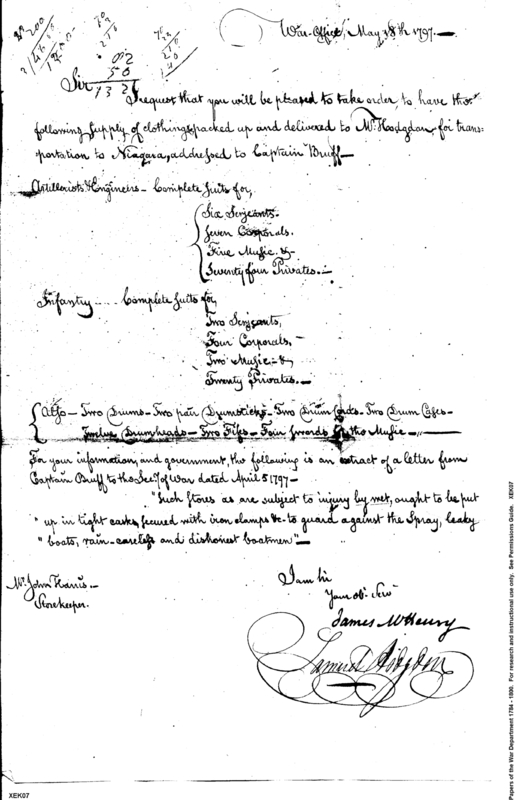 War-Office, May 18th 1797.—
Sir
I request that you will be pleased to take order to have the
following supply of clothing packed up and delivered to Mr. Hodgdon for trans-
portation to Niagara, addressed to Captain Bruff—
Artillerists & Engineers— Complete Suits for,
Six Serjeants.
Seven Corporals.
Five Music. &
Seventy four Privates.—
Infantry ..... Complete Suits for,
Two Serjeants,
Four Corporals,—
Two Music—&
Twenty Privates.—
Also— Two Drums— Two pair Drumsticks— Two Drum Cords— Two Drum Cases—
Twelve Drumheads— Two Fifes— Four Swords for the Music—
For your information, and government, the following is an extract of a letter from
Captain Bruff to the Secy. of War dated April 5 1797—
"Such Stores as are subject to injury by wet, ought to be put
" up in tight casks, secured with iron clamps &c. to guard against the Spray, leaky
" boats, rain— careless and dishonest boatmen"—
I am Sir
Your Obt. Servt.
James McHenry
Mr. John Harris—
Storekeeper.
Samuel Hodgdon
XEK07
XEK07
Papers of the War Department 1784 - 1800. For research and instructional use only. See Permissions Guide.